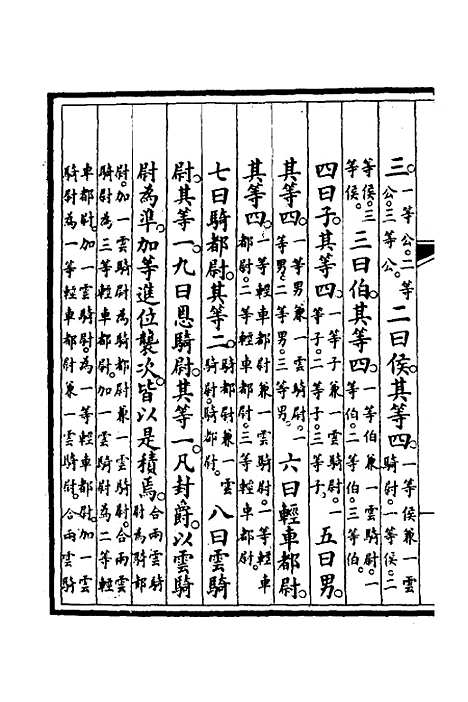 三。一等公。二等公。三等公。二曰侯。其等四。一等侯兼一雲騎尉。一等侯。二
等侯。三等侯。三曰伯。其等四。一等伯兼一雲騎尉。一等伯。二等伯。三等伯。
四曰子。其等四。一等子兼一雲騎尉。一等子。二等子。三等子。五曰男。
其等四。一等男兼一雲騎尉。一等男。二等男。三等男。六曰輕車都尉。
其等四。一等輕車都尉兼一雲騎尉。一等輕車都尉。二等輕車都尉。三等輕車都尉。
七曰騎都尉。其等二。騎都尉兼一雲騎尉。騎都尉。八曰雲騎
尉。其等一。九曰恩騎尉。其等一。凡封爵。以雲騎
尉為準。加等進位襲次。皆以是積焉。合兩雲騎尉為騎都
尉。加一雲騎尉為騎都尉兼一雲騎尉。合兩雲騎尉為三等輕車都尉。加一雲騎尉為二等輕
車都尉。加一雲騎尉。為一等輕車都尉。加一雲騎尉為一等輕車都尉兼一雲騎尉。合兩雲騎